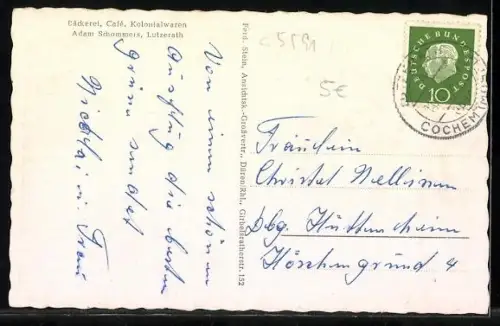 Bäckerei, Café, Kolonialwaren
Adam Schommers, Lutzerath
Von einem schönen
Ausflug die besten
Grüße sendet
Nicolai u. Frau
Ferd. Stein, Ansichtsk.-Großvertr., Düren/Rhl., Girbelsratherstr. 132
c 5591
5€
DEUTSCHE BUNDESPOST
10
COCHEM
Fräulein
Christel Nellissen
Dbg. Hüttenheim
Höschengrund 4